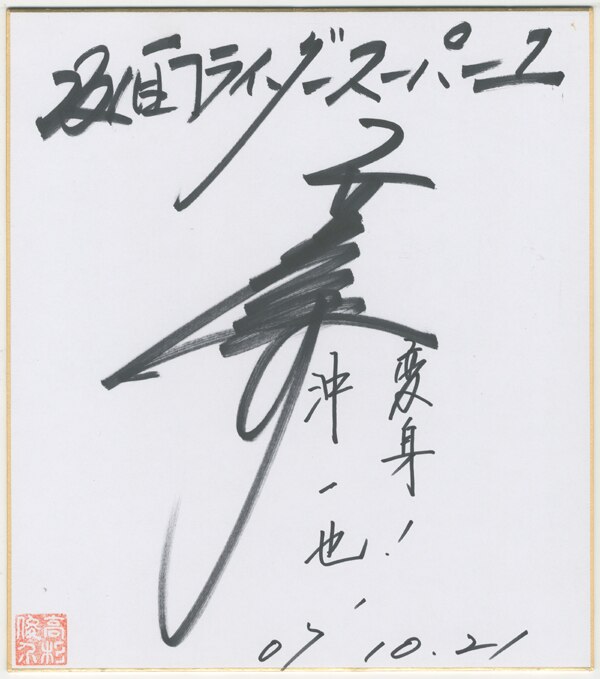 仮面ライダースーパー1
変身!
沖一也
07 10.21
高杉俊介